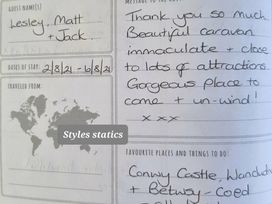 GUEST NAME(S)
Lesley, Matt
+ Jack.
DATES OF STAY: 2/8/21 - 6/8/21
TRAVELED FROM:
Styles statics
Thank you so much
Beautiful caravan
immaculate + close
to lots of attractions.
Gorgeous place to
come + un-wind!
x x x
FAVOURITE PLACES AND THINGS TO DO:
Conwy Castle,
+ Betwsy-Coed